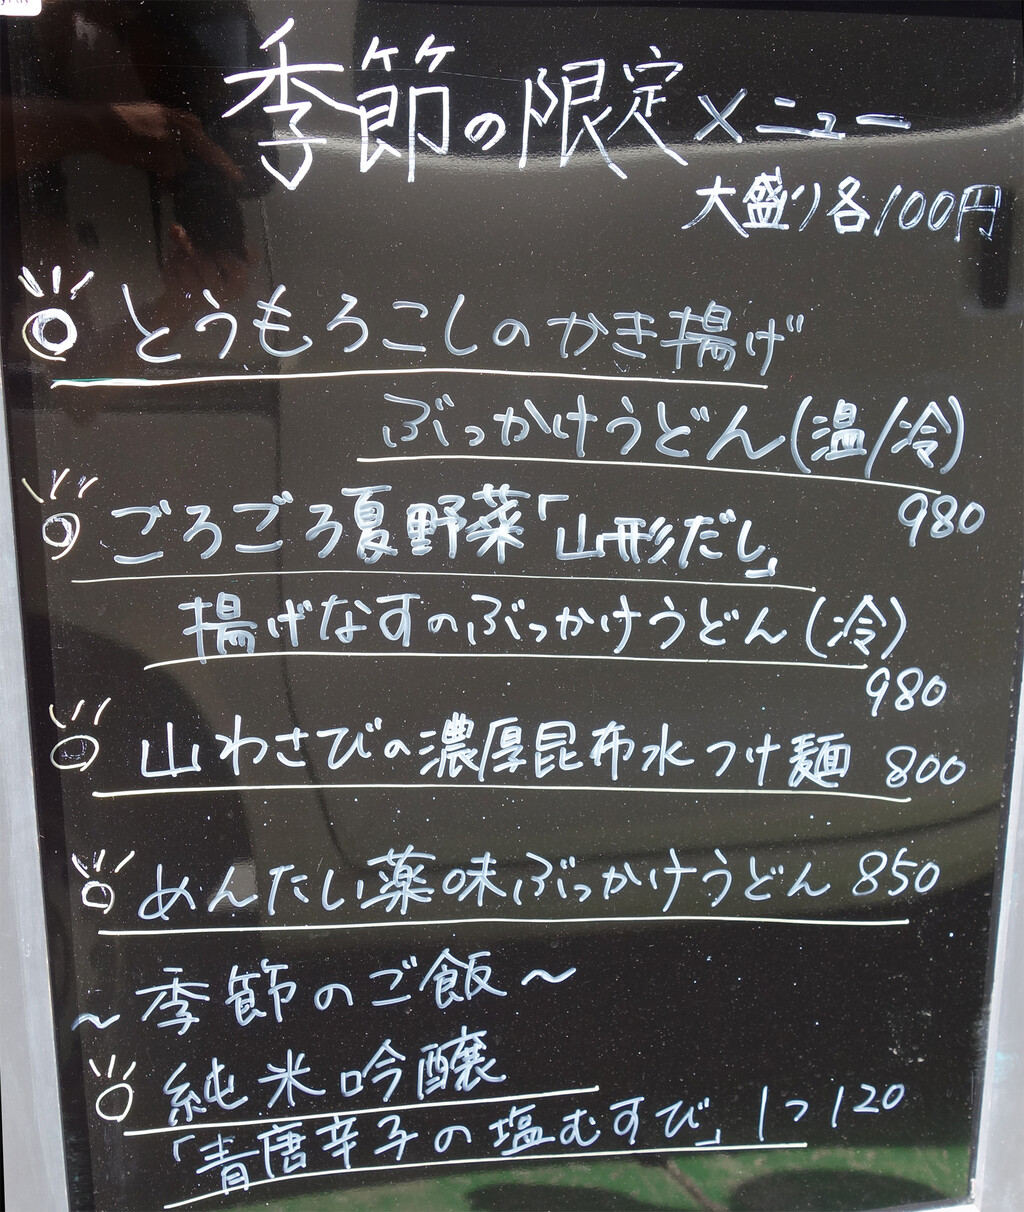 季節の限定メニュー
大盛り各100円
とうもろこしのかき揚げ
ぶっかけうどん(温/冷)
980
ごろごろ夏野菜「山形だし」
揚げなすのぶっかけうどん(冷)
980
山わさびの濃厚昆布水つけ麺 800
めんたい薬味ぶっかけうどん 850
~季節のご飯~
純米吟醸
「青唐辛子の塩むすび」1つ120